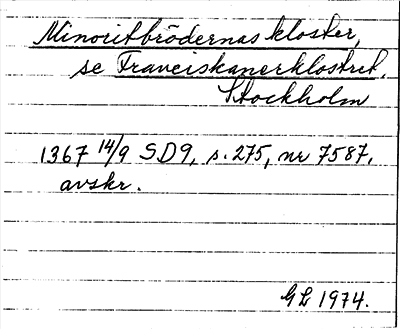 Minoritbrödernas kloster,
se Franciskanerklostret,
Stockholm
1367 14/9 SD9, s. 275, nr 7587.
avskr.
GL 1974.